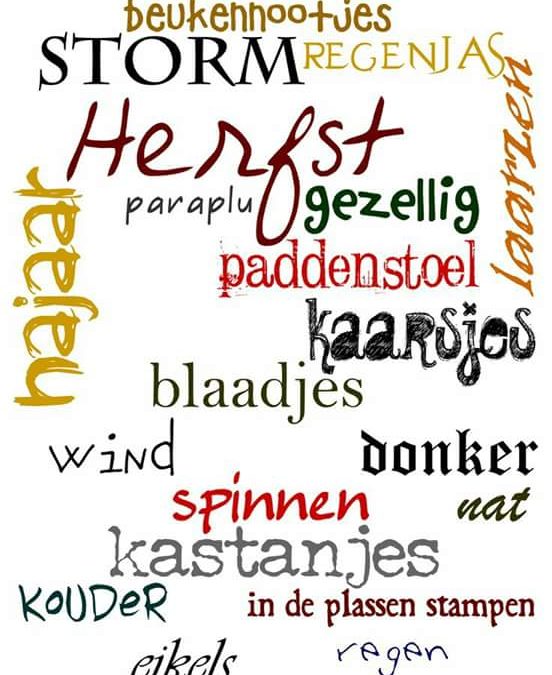 beukennootjes
STORM
REGENJAS
laarzen
Herfst
paraplu
gezellig
najaar
paddenstoel
kaarsjes
blaadjes
wind
donker
spinnen
nat
kastanjes
KOUDER
in de plassen stampen
eikels
regen